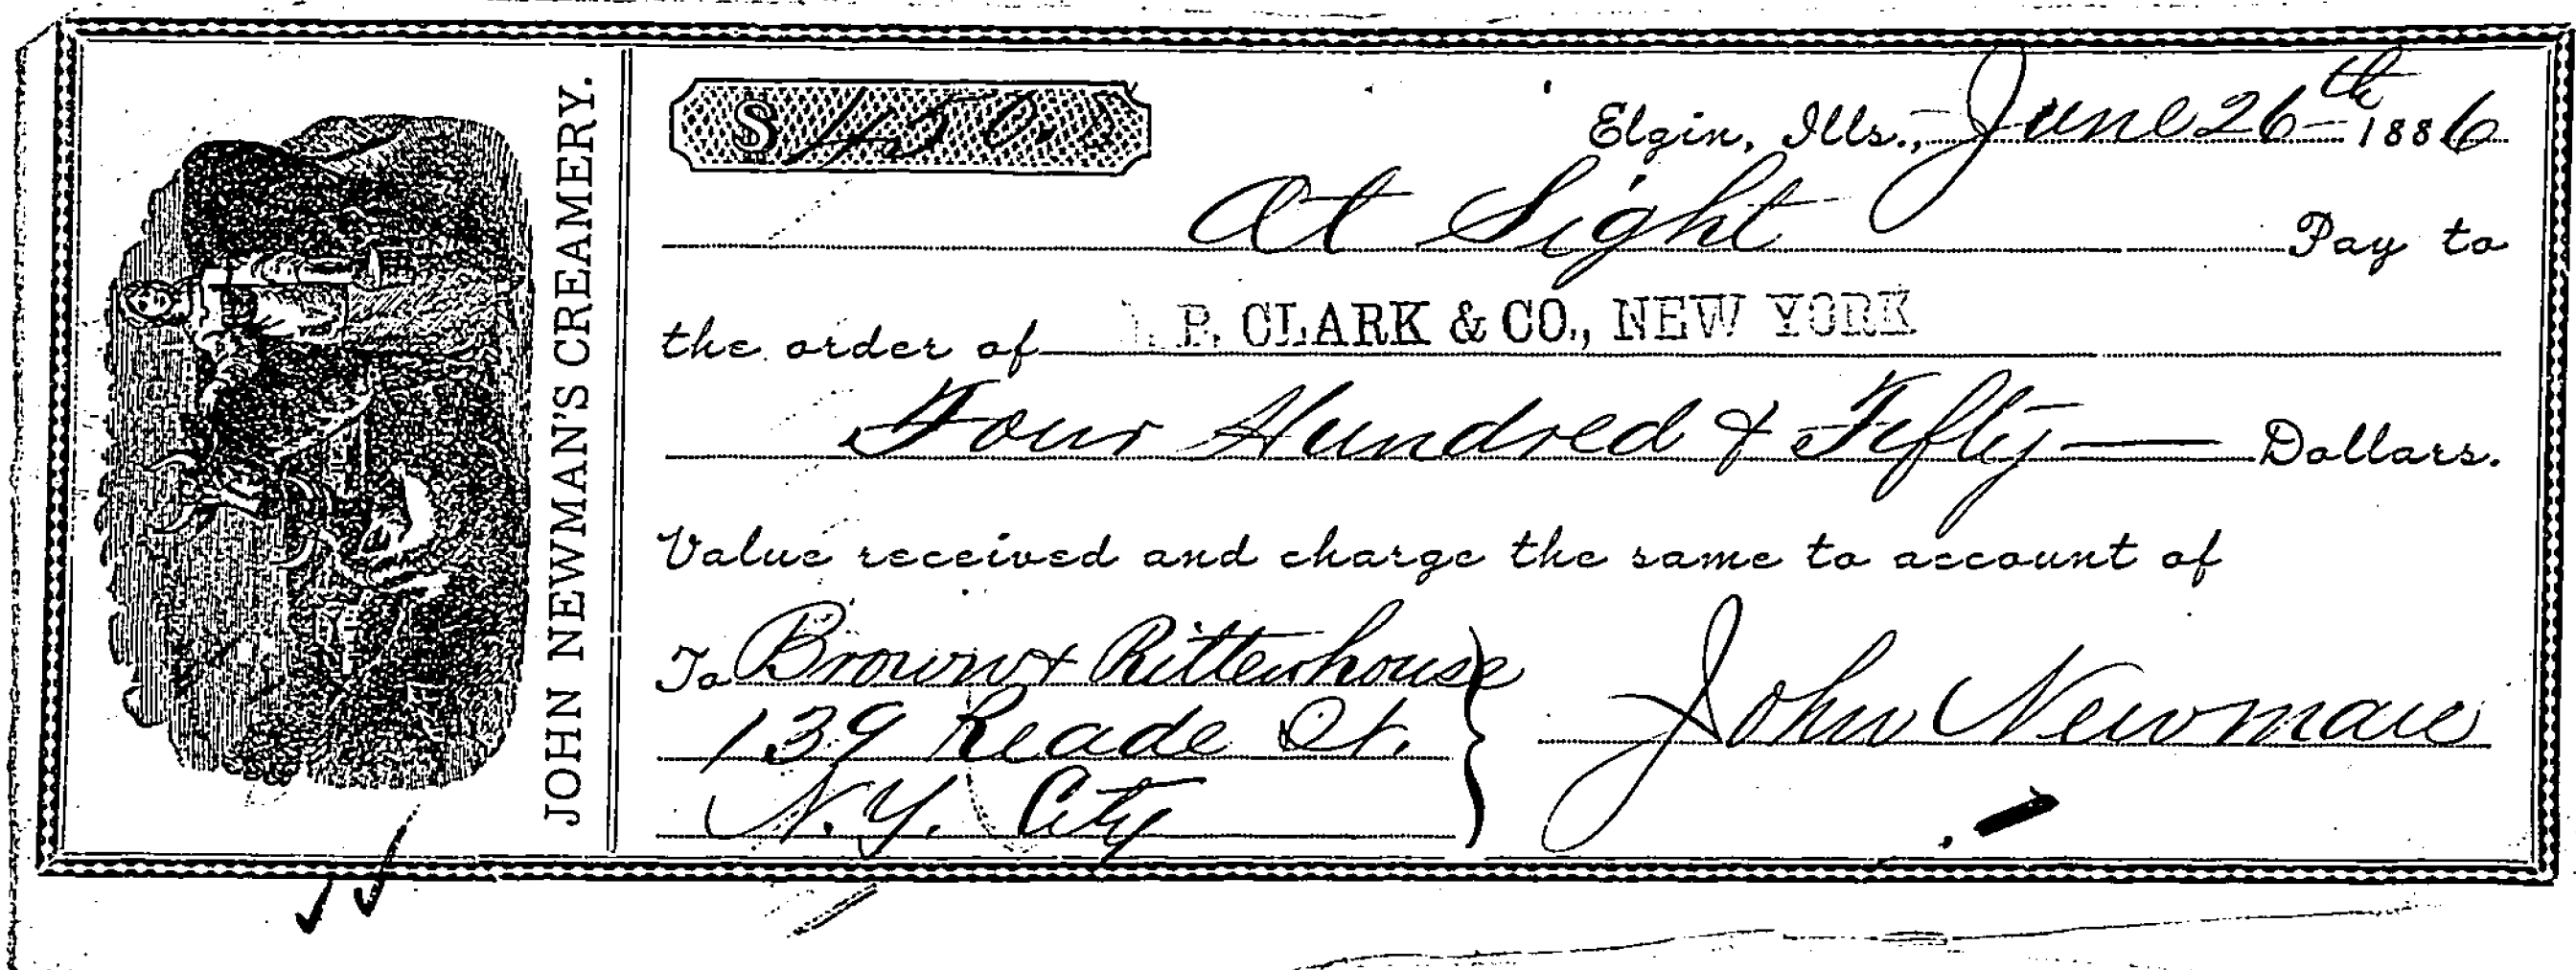 JOHN NEWMAN'S CREAMERY.
$ 450.
Elgin, Ills., June 26th 1886
At Sight Pay to
the order of P. CLARK & CO., NEW YORK
Four Hundred & Fifty — Dollars.
Value received and charge the same to account of
To Brown & Rittenhouse
139 Reade St.
N.Y. City
John Newman